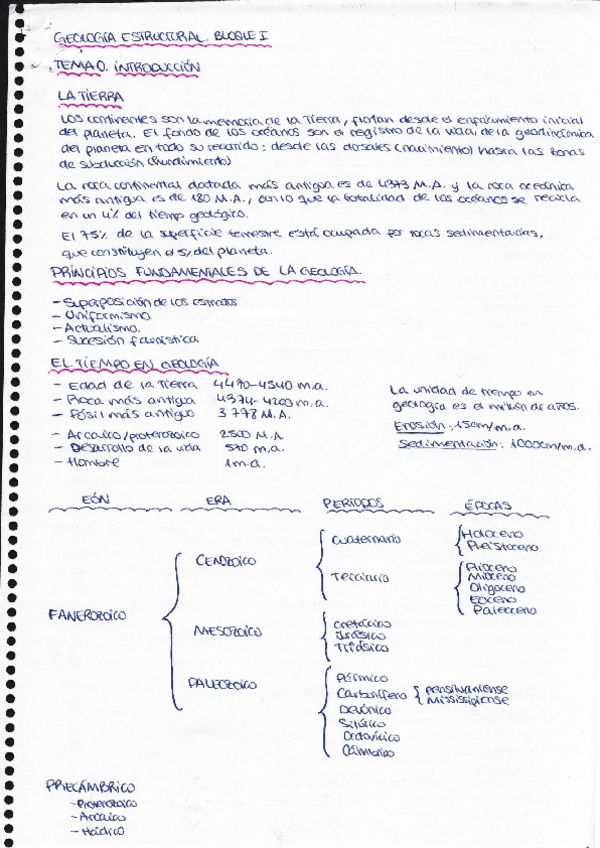 GEOLOGÍA ESTRUCTURAL. BLOQUE I
TEMA 0. INTRODUCCIÓN
LA TIERRA
Los continentes son la memoria de la Tierra, flotan desde el enfriamiento inicial
del planeta. El fondo de los océanos son el registro de la vida, de la geodinámica
del planeta en todo su recorrido: desde las dorsales (nacimiento) hasta las zonas
de subducción (hundimiento)
La roca continental datada más antigua es de 4373 M.A. y la roca oceánica
más antigua es de 180 M.A., con lo que la totalidad de los océanos se recicla
en un 4% del tiempo geológico.
El 75% de la superficie terrestre está ocupada por rocas sedimentarias,
que constituyen el 5% del planeta.
PRINCIPIOS FUNDAMENTALES DE LA GEOLOGÍA.
- Superposición de los estratos
- Uniformismo
- Actualismo.
- Sucesión faunística
EL TIEMPO EN GEOLOGÍA
- Edad de la Tierra 4470-4540 m.a.
- Roca más antigua 4374-4200 m.a.
- Fósil más antiguo 3778 M.A.
- Arcaico/proterozoico 2500 M.A.
- Desarrollo de la vida 570 m.a.
- Hombre 1 m.a.
La unidad de tiempo en
geología es el millón de años.
Erosión: 15cm/m.a.
Sedimentación: 1000cm/m.a.
EÓN ERA PERÍODOS ÉPOCAS
FANEROZOICO
CENOZOICO
Cuaternario
Holoceno
Pleistoceno
Terciario
Plioceno
Mioceno
Oligoceno
Eoceno
Paleoceno
MESOZOICO
Cretácico
Jurásico
Triásico
PALEOZOICO
Pérmico
Carbonífero
Pensilvaniense
Mississipiense
Devónico
Silúrico
Ordovícico
Cámbrico
PRECÁMBRICO
- Proterozoico
- Arcaico
- Háidico